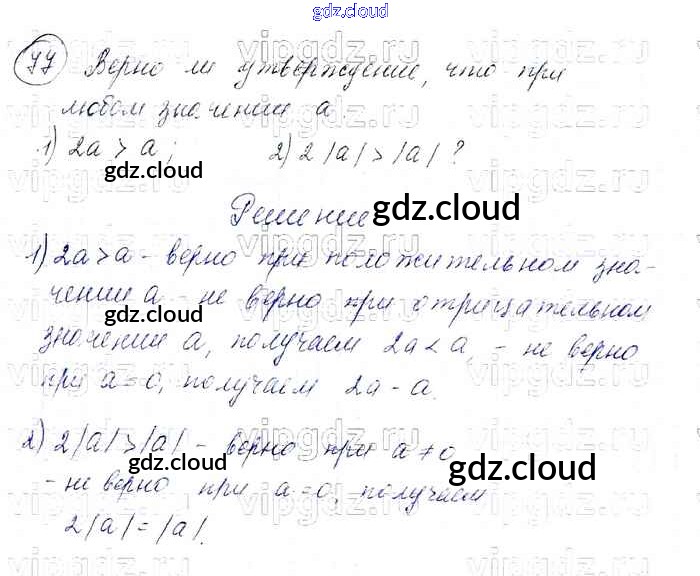 gdz.cloud
77 Верно ли утверждение, что при
любом значении a:
1) 2a > a; 2) 2|a| > |a| ?
Решение
gdz.cloud
1) 2a > a - верно при положительном зна-
чении a - не верно при отрицательном
значении a, получаем 2a < a - не верно
при a = 0, получаем 2a - a.
2) 2|a| > |a| - верно при a ≠ 0
- не верно при a = 0, получаем
2|a| = |a|.